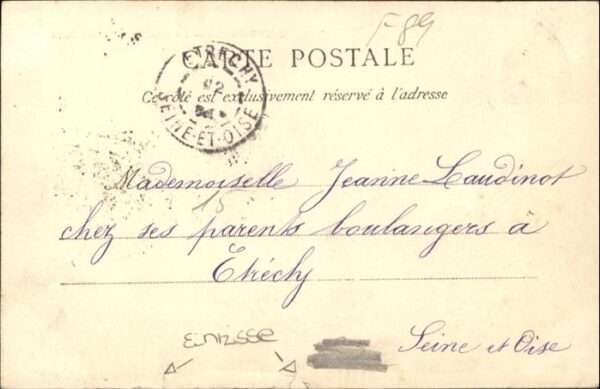 F-89
CARTE POSTALE
Ce côté est exclusivement réservé à l'adresse
ETRECHY
SEINE-ET-OISE
Mademoiselle Jeanne Laudinot
15
chez ses parents boulangers à
Etréchy
Seine et Oise